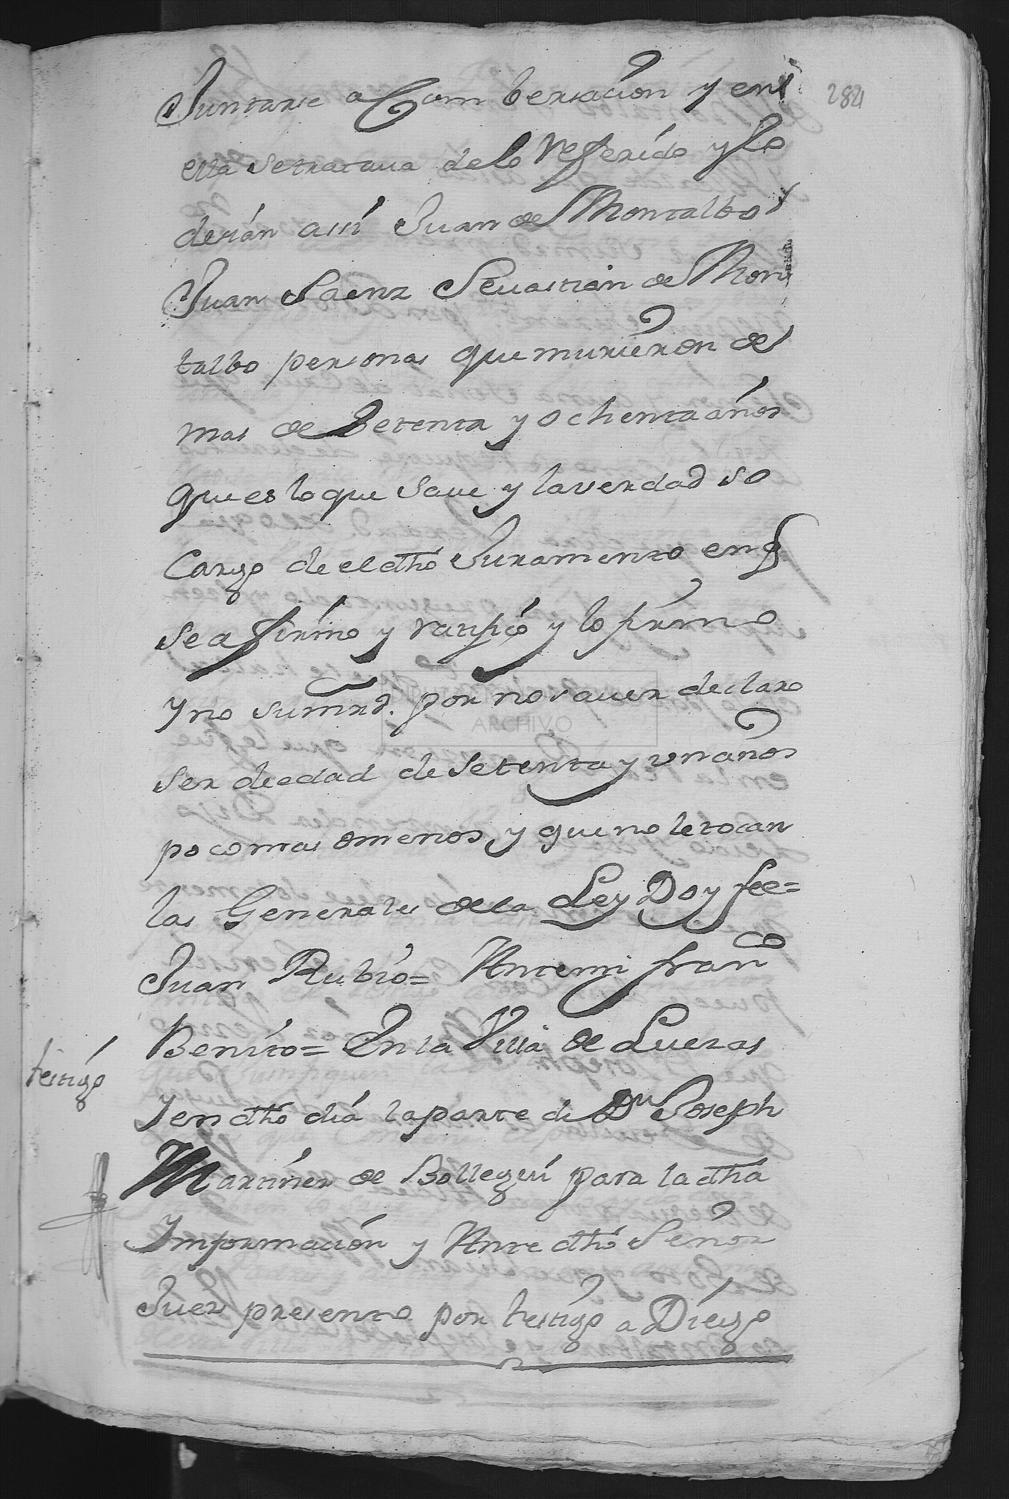 284
Juntarse a Combersacion y en
esta setratava delo Referido y lo
decian assi Juan de Montalbo y
Juan Saenz Sevastian de Mon
talbo personas que murieron de
mas de Setenta y ochenta años
que es lo que save y la verdad so
Cargo de el dho Juramento en q
se afirmo y ratifico y lo firmo
y no sumrd. por no saver declaro
ser de edad de setenta y un años
poco mas omenos, y que no le tocan
las Generales de la Ley Doy fee=
Juan Rubio= Antemi fran.co
Benito= En la Villa de Luezas
testigo
y en dho dia la parte de Dn Joseph
Martinez de Bollegui para la dha
Informacion y Ante dho Señor
Juez presento por testigo a Diego
ARCHIVO